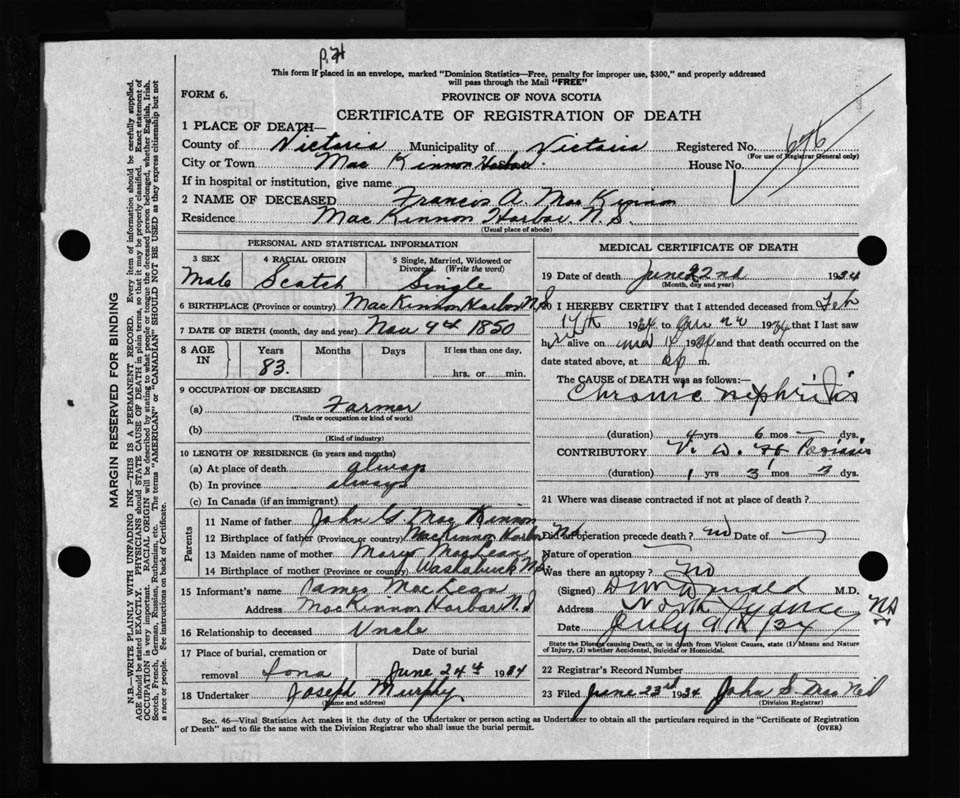 This form if placed in an envelope, marked "Dominion Statistics—Free, penalty for improper use, $300," and properly addressed
will pass through the Mail "FREE"
FORM 6.
PROVINCE OF NOVA SCOTIA
CERTIFICATE OF REGISTRATION OF DEATH
676
1 PLACE OF DEATH—
County of Victoria Municipality of Victoria Registered No.
(For use of Registrar General only)
City or Town Mac Kinnon Harbor House No.
If in hospital or institution, give name
2 NAME OF DECEASED Francis A. Mac Kinnon
Residence Mac Kinnon Harbor N.S.
(Usual place of abode)
PERSONAL AND STATISTICAL INFORMATION
3 SEX 4 RACIAL ORIGIN 5 Single, Married, Widowed or
Divorced (Write the word)
Male Scotch Single
6 BIRTHPLACE (Province or country) MacKinnon Harbor N.S
7 DATE OF BIRTH (month, day and year) Nov 9th 1850
8 AGE IN Years Months Days If less than one day,
83. hrs. or min.
9 OCCUPATION OF DECEASED
(a) Farmer
(Trade or occupation or kind of work)
(b)
(Kind of industry)
10 LENGTH OF RESIDENCE (in years and months)
(a) At place of death always
(b) In province always
(c) In Canada (if an immigrant)
Parents
11 Name of father John G. Mac Kinnon
12 Birthplace of father (Province or country) MacKinnon Harbor N.S.
13 Maiden name of mother Mary MacLean
14 Birthplace of mother (Province or country) Washabuck N.S.
15 Informant's name James MacLean
Address MacKinnon Harbor N.S
16 Relationship to deceased Uncle
17 Place of burial, cremation or Date of burial
removal Iona June 24th 1934
18 Undertaker Joseph Murphy
(Name and address)
MEDICAL CERTIFICATE OF DEATH
19 Date of death June 22nd 1934
(Month, day and year)
20 I HEREBY CERTIFY that I attended deceased from Feb
17th 1934 to 1934 that I last saw
h alive on and that death occurred on the
date stated above, at m.
The CAUSE OF DEATH was as follows:—
Chronic nephritis
(duration) 4 yrs 6 mos — dys.
CONTRIBUTORY
(duration) 1 yrs 3 mos dys.
21 Where was disease contracted if not at place of death?
Did an operation precede death? no Date of
Nature of operation
Was there an autopsy? no
(Signed) M.D.
Address North Sydney NS
Date July 9th/34
State the Disease causing Death, or in death from Violent Causes, state (1) Means and Nature
of Injury, (2) whether Accidental, Suicidal or Homicidal.
22 Registrar's Record Number
23 Filed June 23rd 1934 John S. MacNeil
(Division Registrar)
Sec. 46—Vital Statistics Act makes it the duty of the Undertaker or person acting as Undertaker to obtain all the particulars required in the "Certificate of Registration
of Death" and to file the same with the Division Registrar who shall issue the burial permit.
(OVER)
MARGIN RESERVED FOR BINDING
N.B.—WRITE PLAINLY WITH UNFADING INK—THIS IS A PERMANENT RECORD. Every item of information should be carefully supplied.
AGE should be stated EXACTLY. PHYSICIANS should STATE CAUSE OF DEATH in plain terms, so that it may be properly classified. Exact statement of
OCCUPATION is very important. RACIAL ORIGIN will be described by stating to what people or tongue the deceased person belonged, whether English, Irish,
Scotch, French, German, Russian, Ruthenian, etc. The terms "AMERICAN" or "CANADIAN" SHOULD NOT BE USED as they express citizenship but not
a race or people. See instructions on back of Certificate.